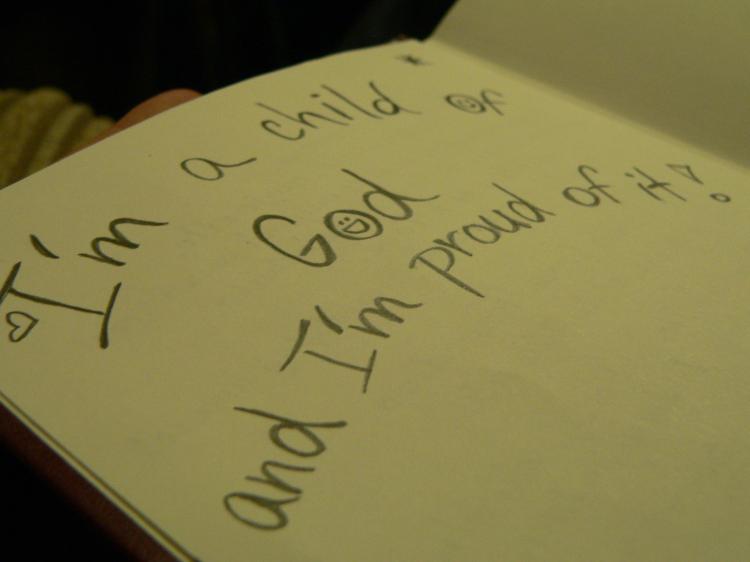 I'm a child of
God
and I'm proud of it!